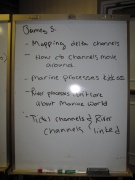 - Mapping delta channels
- How do channels move
around
- Marine processes
- River processes
About Marine World
- Tidal channels & River
Channels linked